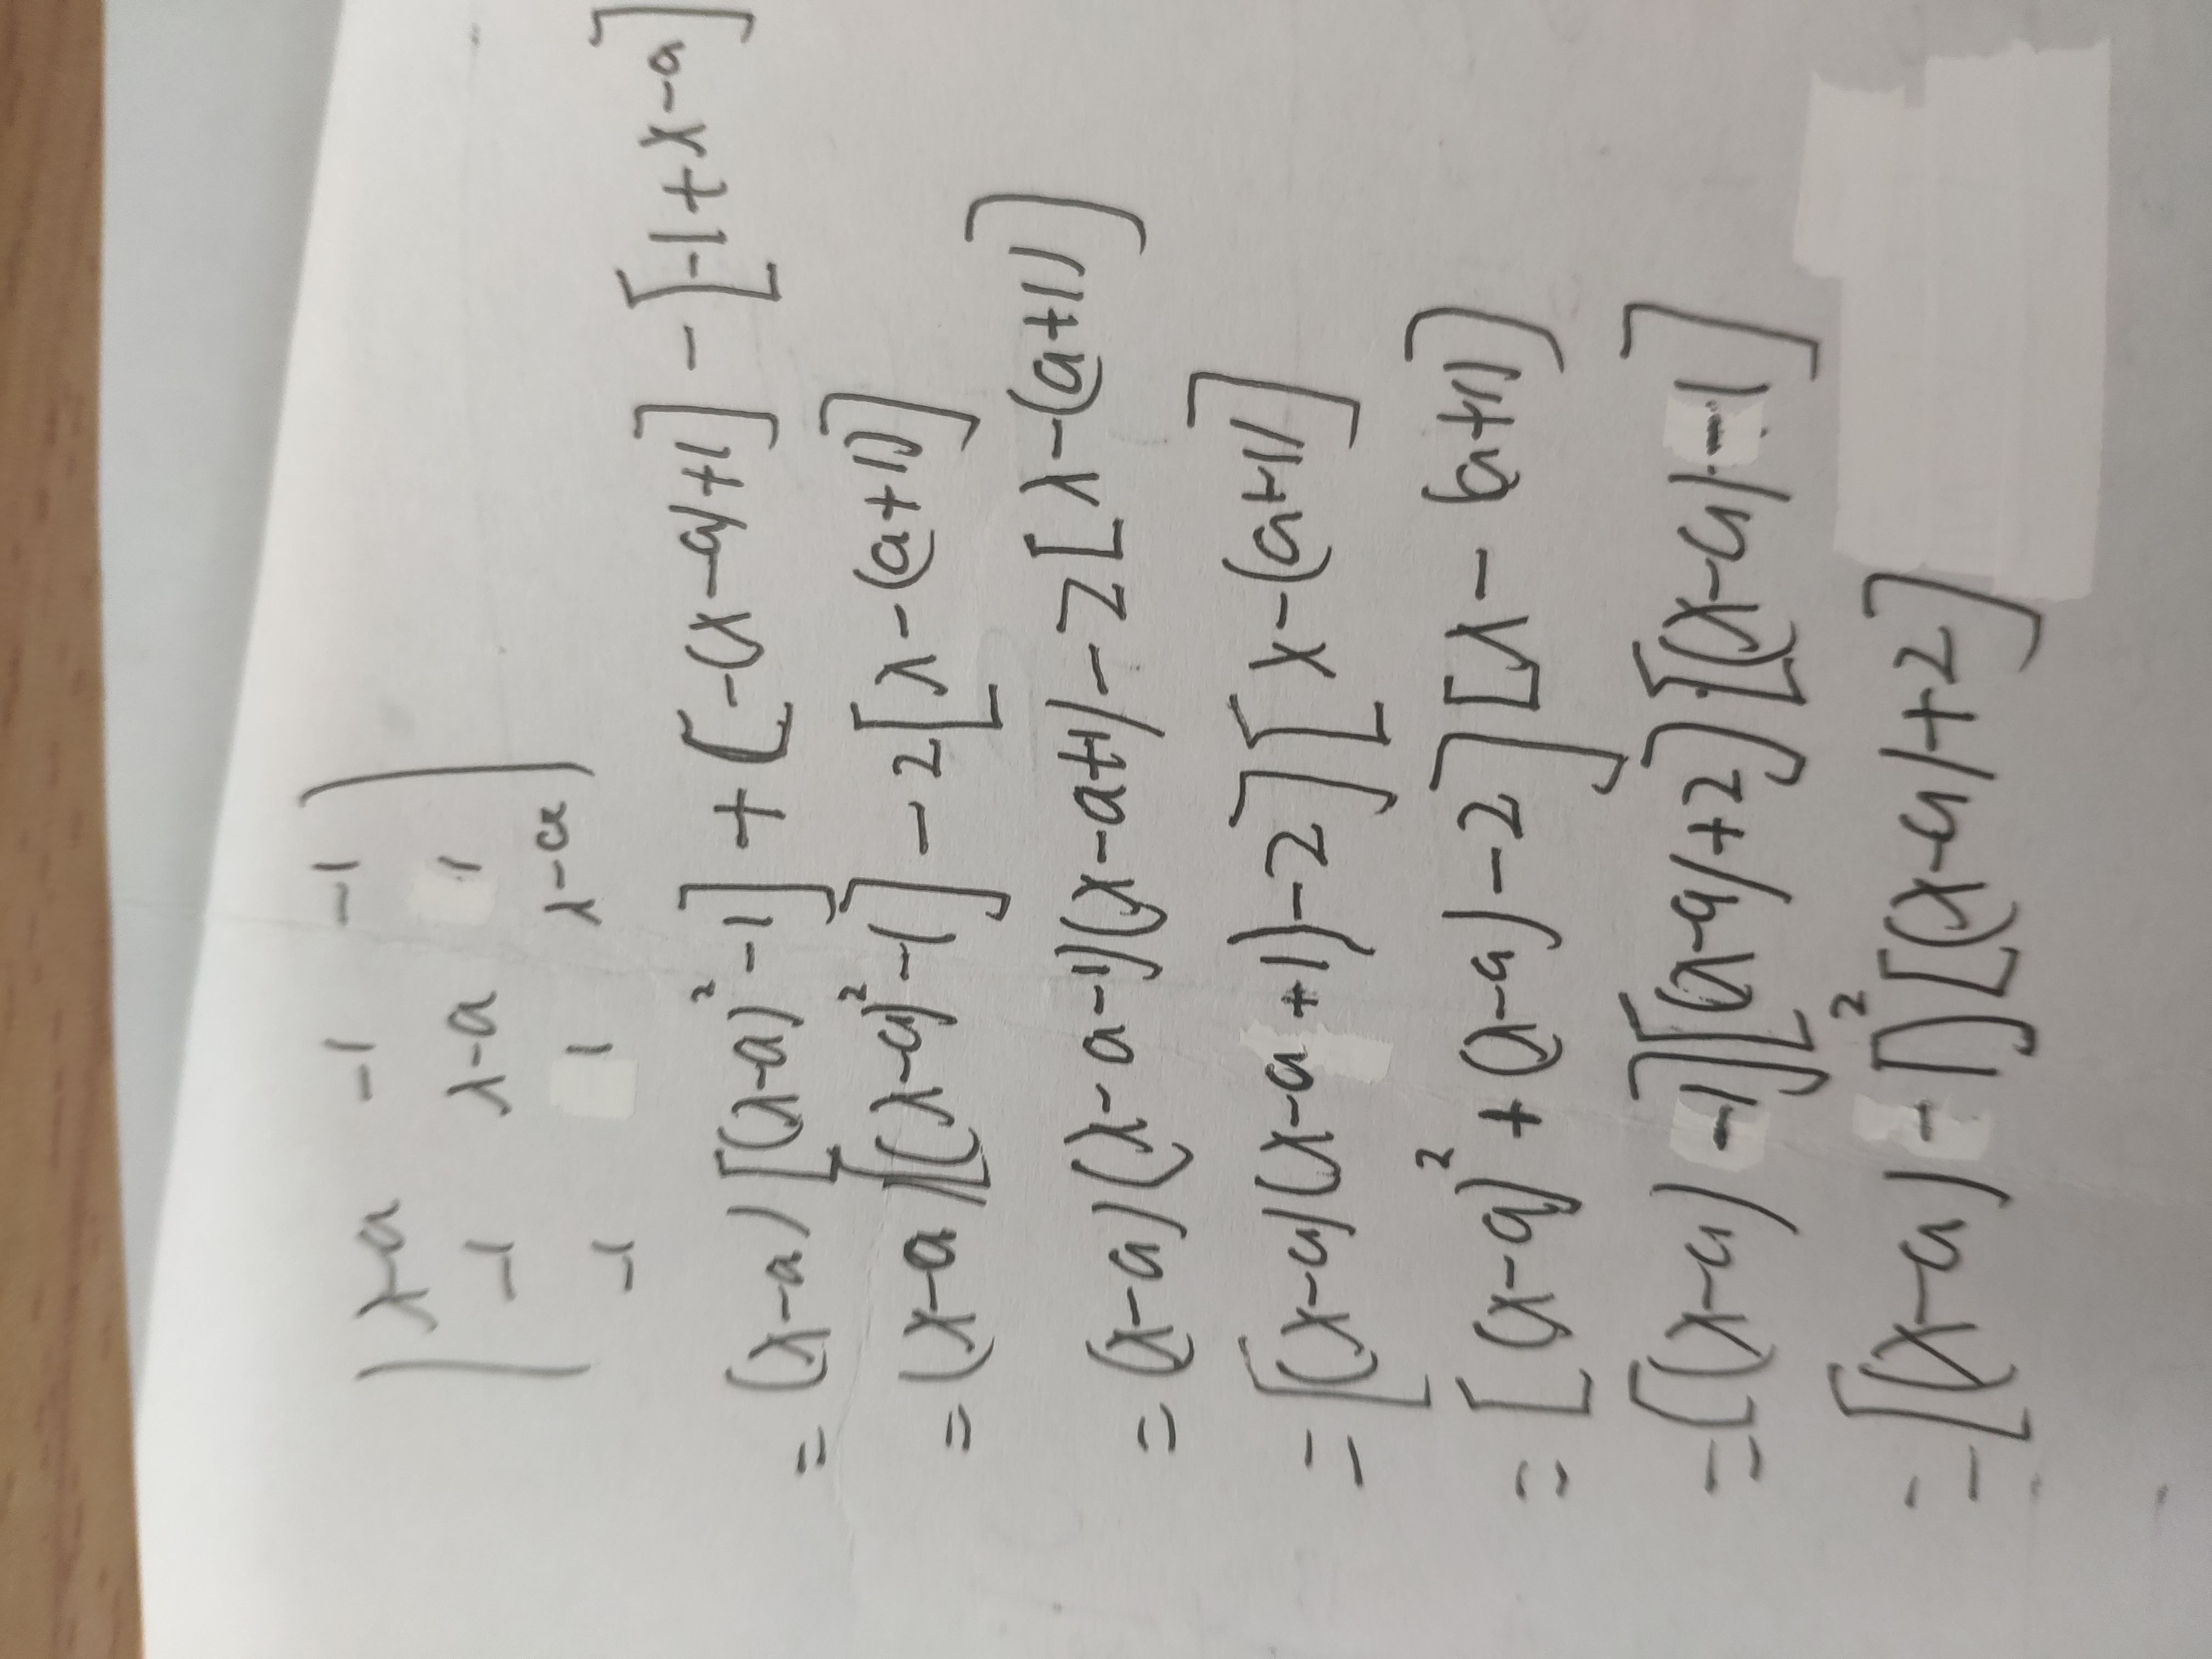 | λ-a -1 -1 |
| -1 λ-a 1 |
| -1 1 λ-a |
= (λ-a) [(λ-a)² -1] + [-(λ-a)+1] - [-1+λ-a]
= (λ-a) [(λ-a)² -1] - 2[λ-(a+1)]
= (λ-a)(λ-a-1)(λ-a+1) - 2[λ-(a+1)]
= [(λ-a)(λ-a+1)-2][λ-(a+1)]
= [(λ-a)² + (λ-a) -2][λ-(a+1)]
= [(λ-a) -1][(λ-a)+2][(λ-a)-1]
= [(λ-a) -1]²[(λ-a)+2]